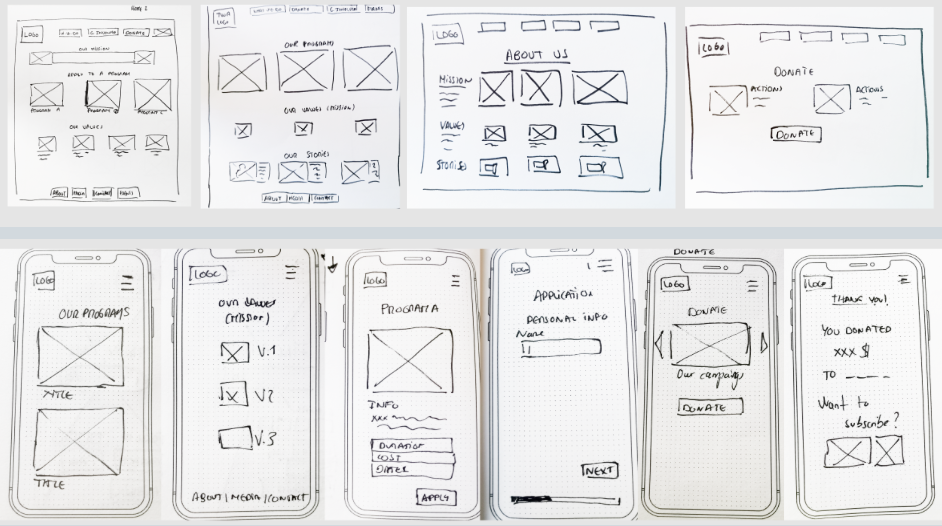 LOGO
DONATE
OUR MISSION
APPLY TO A PROGRAM
PROGRAM A
PROGRAM B
PROGRAM C
OUR VALUES
ABOUT
MEDIA
CONTACT
YOUR LOGO
DONATE
OUR PROGRAMS
OUR VALUES (MISSION)
OUR STORIES
ABOUT
MEDIA
CONTACT
LOGO
ABOUT US
MISSION
VALUES
STORIES
LOGO
DONATE
ACTIONS
ACTIONS
DONATE
LOGO
OUR PROGRAMS
TITLE
TITLE
LOGO
OUR VALUES
(MISSION)
V.1
V2
V.3
ABOUT | MEDIA | CONTACT
LOGO
PROGRAM A
INFO
XXX
DURATION
COST
DATES
APPLY
LOGO
APPLICATION
PERSONAL INFO
Name
NEXT
DONATE
LOGO
DONATE
Our campaigns
DONATE
LOGO
THANK YOU!
YOU DONATED
XXX $
TO
Want to
subscribe?